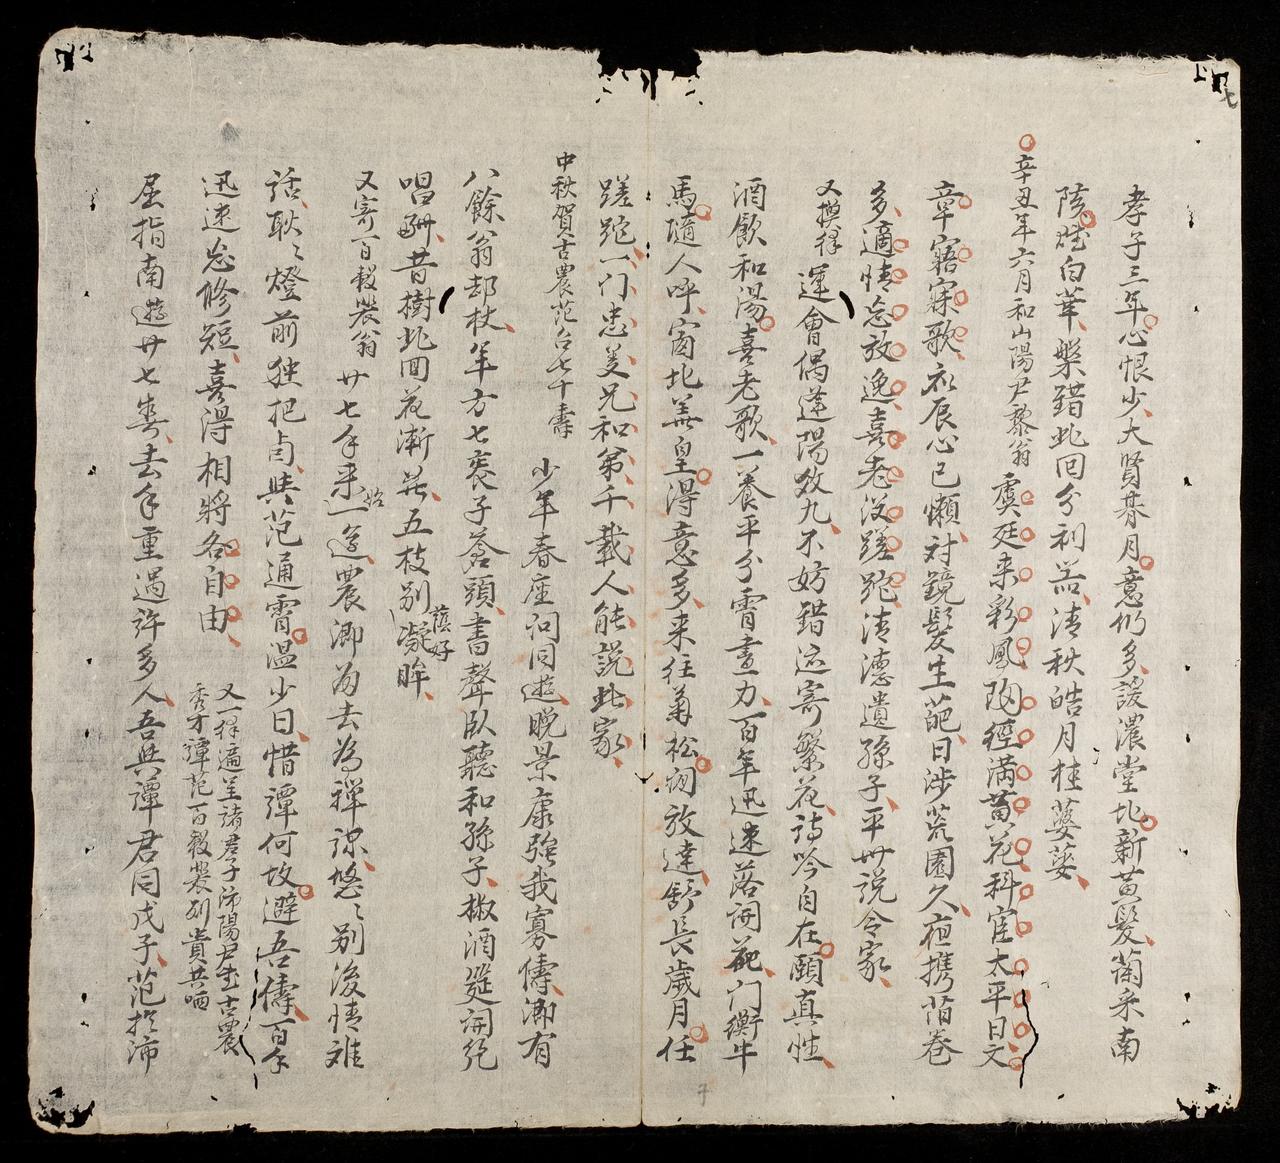 孝子三年心恨少大賢朞月意仍多諼濃堂北新萱髮蘭采南
陔燦白華槃錯此回分利器清秋皓月桂婆娑
辛丑年六月和山陽尹黎翁 虞廷来彩鳳陶徑滿黃花科宦太平日文
章寤寐歌衣辰心已懶対鏡髮生葩日涉荒園久夜携萹卷
多適情忘放逸喜老没蹉跎清德遺孫子平世説令家
又 運會偶逢陽效九不妨錯迕寄繁花詩吟自在頤真性
酒飲和湯喜老歌一養平分霄晝力百年迅速落開葩门衡牛
馬隨人呼窗北羲皇得意多来往菊松祠放達舒長歲月任
蹉跎一门忠美兄和弟千載人能説此家
中秋賀古農范台七十壽 少年春座问同遊晚景康強我寡儔卿有
八餘翁却杖年方七袠子蒼頭書聲臥聽和孫子椒酒筵開絶
唱酬昔樹北回花漸茂五枝别凝眸
蔭好
又寄百穀裴翁 廿七年来一逅農卿為去為禪誄悠〻别後情难
始
話耿〻燈前独把卣與范通霄温少日惜譚何故避吾儔百年
迅速忘修短喜得相將各自由 又一律適呈诸君子沛陽尹 古農
秀才譚范百穀裴列貴共哂
屈指南遊廿七春去年重過许多人吾與譚君同戊子范於沛
七